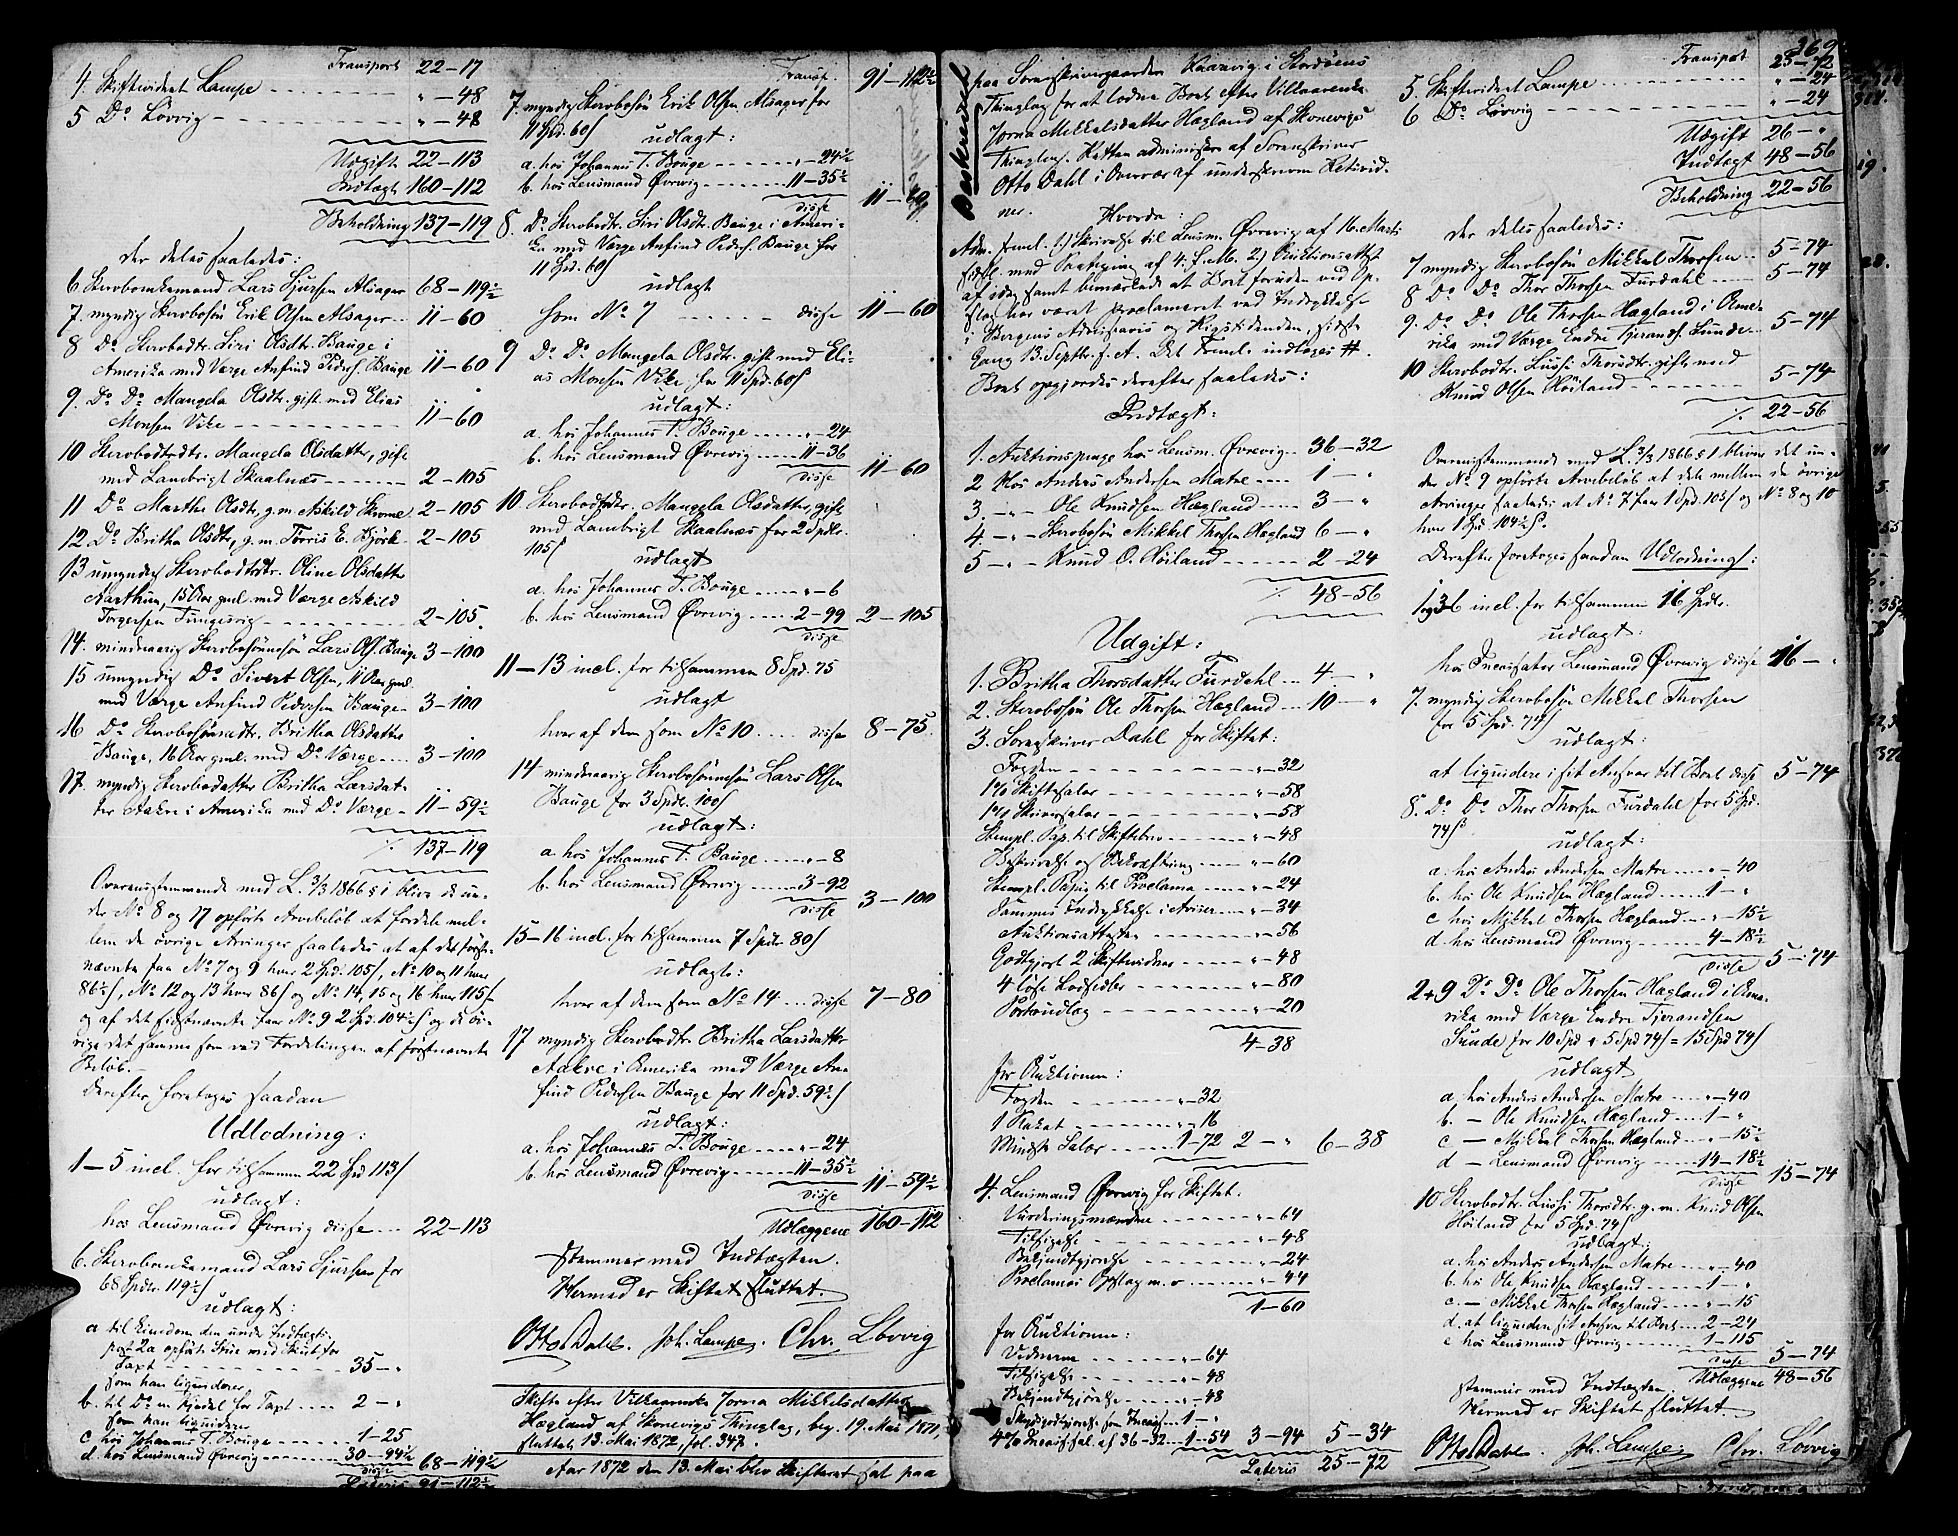 Transport 22-17
4. Skiftevidnet Lampe " - 48
5 Do Lövvig " - 48
Udgift 22-113
Indtægt 160-112
Beholdning 137-119
der deles saaledes:
6 Sterboenkemand Lars Sjursen Alsager 68-119½
7. myndig Sterbosön Erik Olsen Alsager 11-60
8 Do Sterbodtr. Siri Olsdtr. Bauge i
Amerika med Værge Anfind Peders. Bauge 11-60
9. Do Do Mangela Olsdtr. gift med Elias
Monsen Vike 11-60
10 Sterbodtrdtr. Mangela Olsdatter, gift
med Lambrigt Skaalnæs 2-105
11 Do Marthe Olsdtr, g.m. Askild 2-105
12. Do Britha Olsdtr, g.m. Torris E. Björk 2-105
13 umyndig Sterbodtrdtr. Oline Olsdatter
15 Aar gml. med Værge Askild
Torgersen 2-105.
14. mindreaarig Sterbosönnesön Lars Ols. Bauge 3-100
15 umyndig Do Sivert Olsen, 11 Aar gml.
med Værge Anfind Pedersen Bauge 3-100
16 Do Sterbosönnedtr. Britha Olsdatter
Bauge, 16 Aar gml. med Do Værge 3-100
17. myndig Sterbodatter Britha Larsdat-
ter Aakre i Amerika med Do Værge 11-59½
./. 137-119
Overensstemmende med L. 3/3 1866 § 1 blive de un-
der No 8 og 17 opförte Arvebelöb at fordele mel-
lem de övrige Arvinger saaledes at af det först-
nævnte faa No 7 og 9 hver 2 Spd. 105 s, No 10 og 11 hver
86½ s, No 12 og 13 hver 86 s og No 14, 15 og 16 hver 115 s
og af det sidstnævnte faar No 9 2 Spd. 104½ s og de öv-
rige det samme som ved Fordelingen af förstnævnte
Belöb.
Derefter foretages saadan
Udlodning:
1-5 incl. for tilsammen 22 Spd 113 s
udlagt:
hos Lensmand Övrevig disse 22-113
6. Sterboenkemand Lars Sjursen for
68 Spdlr. 119½ s
udlagt:
a til Eiendom den under Indtægts-
post 2a opförte
Taxt 35 - "
som han liquiderer
b. til Do en Kjedel for Taxt 2 - "
som han liquiderer
c. hos Johannes T. Bouge 1-25
d. hos Lensmand Övrevig 30-94½
disse 68-119½
Lateris 91-112½
Transp. 91-112½
7. myndig Sterbosön Erik Olsen Alsager for
11 Spd. 60 s
udlagt:
a. hos Johannes T. Bouge " - 24½
b. hos Lensmand Övrevig 11-35½
disse 11-60
8. Do Sterbodtr. Siri Olsdtr. Bauge i Ameri-
ka med Værge Anfind Peders. Bauge for
11 Spd. 60 s
udlagt
som No 7 disse 11-60
9 Do Do Mangela Olsdtr. gift med Eli-
as Monsen Vike for 11 Spd. 60 s
udlagt:
a. hos Johannes T. Bouge " - 24
b. hos Lensmand Övrevig 11-36
disse 11-60
10. Sterbodtrdtr. Mangela Olsdatter, gift
med Lambrigt Skaalnæs for 2 Spdlr.
105 s
udlagt
a. hos Johannes T. Bouge " - 6
b. hos Lensmand Övrevig 2-99
disse 2-105
11-13 incl. for tilsammen 8 Spd. 75
udlagt
hver af dem som No 10 disse 8-75.
14 mindreaarig Sterbosönnesön Lars Olsen
Bauge for 3 Spdlr. 100 s
udlagt:
a. hos Johannes T. Bauge " - 8
b. hos Lensmand Övrevig 3-92
disse 3-100
15-16 incl. for tilsammen 7 Spdlr. 80 s
udlagt:
hver af dem som No 14 disse 7-80
17 myndig Sterbodtr. Britha Larsdatter
Aakre i Amerika med Værge An-
find Pedersen Bauge for 11 Spd. 59½ s
udlagt:
a. hos Johannes T. Bouge " - 24
b. hos Lensmand Övrevig 11-35½
disse 11-59½
Udlæggene 160-112
stemmer med Indtægten.
Hermed er Skiftet sluttet.
Otto Dahl. Joh. Lampe. Chr. Lövvig
Skifte efter Vilkaarenke Jorna Mikkelsdatter
Hægland af Skonevigs Thinglag, beg. 19. Mai 1871,
sluttet 13. Mai 1872, fol. 347.
Aar 1872 den 13. Mai blev Skifteret sat paa
Beskrevet
369
paa Sorenskrivergaarden Kaarvig i Stordöens
Thinglag for at lodne Boet efter Vilkaarenke
Jorna Mikkelsdatter Hægland af Skonevigs
Thinglag. Retten administreret af Sorenskriver
Otto Dahl i Overvær af underskrevne Retsvid-
ner. Hvorda:
Adm. freml. 1) Skrivelse til Lensm. Övrevig af 16. Marts
sidstl. med Paategning af 4. f. M. 2) Auktionsattest
af idag samt bemærkede at Boet foruden ved Op-
slag har været proclameret ved Indrykkelse
i Bergens Adresseavis og Rigstidenden, sidste
Gang 13. Septbr. f. A. Det freml. indtages #.
Boet opgjordes derefter saaledes:
Indtægt:
1. Auktionspenge hos Lensm. Övrevig 36-32
2. Hos Anders Andersen Matre 1 - "
3. -"- Ole Knudsen Hægland 3 - "
4. -"- Sterbosön Mikkel Thorsen Hægland 6 - "
5 -"- Knud O. Höiland 2-24
./. 48-56
Udgift:
1. Britha Thorsdatter Furdahl 4 - "
2. Sterbosön Ole Thorsen Hægland 10 - "
3. Sorenskriver Dahl for Skiftet:
Fogden " - 32
1% Skiftesalær " - 58
1% Skriversalær " - 58
Stempl. Pap. til Skiftebrev " - 48
Beskrivelse og Bekræftning " - 60
Stempl. Papir til Proclama " - 24
Sammes Indrykkelse i Aviser " - 34
Auktionsattester " - 56
Godtgjort 2 Skiftevidner " - 48
4 löse Lodsedler " - 80
Portoudlæg " - 20
4-38
for Auktionen:
Fogden " - 32
1 Plakat " - 16
Mindste Salær 1-72 2 - " 6-38
4. Lensmand Övrevig for Skiftet.
Vurderingsmændene " - 64
Tilsigelse " - 48
Bekjendtgjörelse " - 24
Proclamas Opslag m. v. " - 44
1-60
for Auktionen:
Vidnerne " - 64
Tilsigelse " - 48
Bekjendtgjörelse " - 48
1 - "
4% Incassosal. af 36-32 1-54 3-94 5-34
Lateris 25-72
Transport 25-72
5. Skiftevidnet Lampe " - 24
6 Do Lövvig " - 24
Udgift 26 - "
Indtægt 48-56
Beholdning 22-56
der deles saaledes:
7 myndig Sterbosön Mikkel Thorsen 5-74
8 Do Do Thor Thorsen Furdahl 5-74
9. Do Do Ole Thorsen Hægland i Ame-
rika med Værge Endre Tjerands. Sunde 5-74
10 Sterbodtr. Lussi Thorsdtr. gift med
Knud Olsen Höiland 5-74
./. 22-56
Overensstemmende med L. 3/3 1866 § 1 bliver det un-
der No 9 opförte Arvebelöb at dele mellem de övrige
Arvinger saaledes at No 7 faar 1 Spd. 105 s og No 8 og 10
hver 1 Spd. 104½ s.
Derefter foretages saadan Udlodning:
1 og 3-6 incl. for tilsammen 16 Spdlr.
udlagt:
hos Incassator Lensmand Övrevig disse 16 - "
7. myndig Sterbosön Mikkel Thorsen
for 5 Spd. 74 s
udlagt:
at liquidere i sit Ansvar til Boet disse 5-74
8. Do Do Thor Thorsen Furdahl for 5 Spd.
74 s
udlagt:
a. hos Anders Andersen Matre " - 40
b. hos Ole Knudsen Hægland 1 - "
c hos Mikkel Thorsen Hægland " - 15½
d. hos Lensmand Övrevig 4-18½
disse 5-74
2 & 9 Do Do Ole Thorsen Hægland i Ame-
rika med Værge Endre Tjerandsen
Sunde for 10 Spd & 5 Spd 74 s = 15 Spd 74 s
udlagt
a. hos Anders Andersen Matre " - 40
b. - Ole Knudsen Hægland 1 - "
c - Mikkel Thorsen Hægland " - 15½
d - Lensmand Övrevig 14-18½
disse 15-74
10 Sterbodtr. Lussi Thorsdtr. g. m. Knud Olsen
Höiland for 5 Spd. 74 s
udlagt:
a. hos Anders Andersen Matre " - 40
b. hos Ole Knudsen Hægland 1 - "
c. - Mikkel Thorsen Hægland " - 15
d. at liquidere sit Ansvar til Boet 2-24
e hos Lensmand Övrevig 1-115
disse 5-74
Udlæggene 48-56
stemmer med Indtægten
Hermed er Skiftet sluttet.
Otto Dahl. Joh. Lampe. Chr. Lövvig